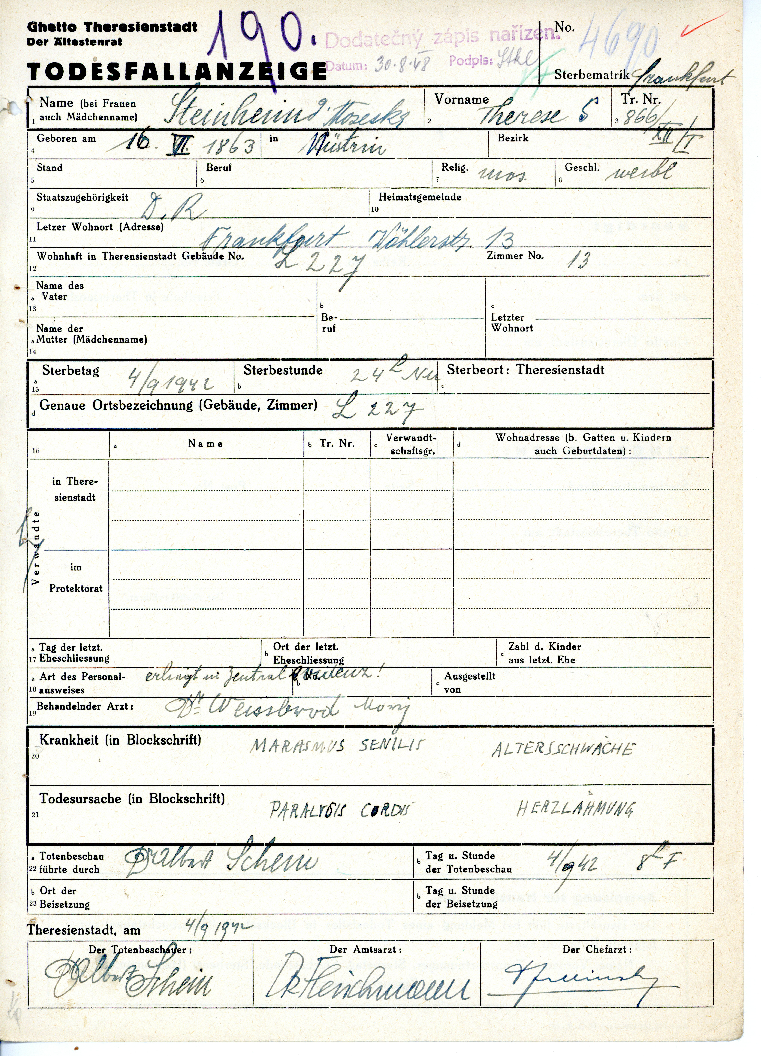 Ghetto Theresienstadt
Der Ältestenrat
190.
Dodatečný zápis nařízen.
Datum: 30.8.48 Podpis:
No. 4690
TODESFALLANZEIGE
Sterbematrik Frankfurt
Name (bei Frauen auch Mädchenname) 1
Vorname 2 Therese S
Tr. Nr. 3 866/ XII/I
Geboren am 4 16. VII. 1863 in
Bezirk
Stand 5
Beruf 6
Relig. 7 mos
Geschl. 8 weibl
Staatszugehörigkeit 9 D.R
Heimatsgemeinde 10
Letzer Wohnort (Adresse) 11 Frankfurt Wöhlerstr. 13
Wohnhaft in Theresienstadt Gebäude No. 12 L 227
Zimmer No. 13
Name des a Vater 13
b Beruf
c Letzter Wohnort
Name der a Mutter (Mädchenname) 14
Sterbetag a 15 4/9 1942
Sterbestunde b 24h
Sterbeort: Theresienstadt c
d Genaue Ortsbezeichnung (Gebäude, Zimmer) L 227
16
a Name
b Tr. Nr.
c Verwandtschaftsgr.
d Wohnadresse (b. Gatten u. Kindern auch Geburtdaten):
Verwandte
in Theresienstadt
im Protektorat
a Tag der letzt. 17 Eheschliessung
b Ort der letzt. Eheschliessung
c Zahl d. Kinder aus letzt. Ehe
a Art des Personal- 18 ausweises
c Ausgestellt von
Behandelnder Arzt: 19 Dr Weissbrod
Krankheit (in Blockschrift) 20 MARASMUS SENILIS ALTERSSCHWÄCHE
Todesursache (in Blockschrift) 21 PARALYSIS CORDIS HERZLÄHMUNG
a Totenbeschau 22 führte durch Dr Albert Schein
b Tag u. Stunde der Totenbeschau 4/9 42 8h F
a Ort der 23 Beisetzung
b Tag u. Stunde der Beisetzung
Theresienstadt, am 4/9 1942
Der Totenbeschauer:
Der Amtsarzt:
Der Chefarzt:
Dr Albert Schein
Dr Fleischmann